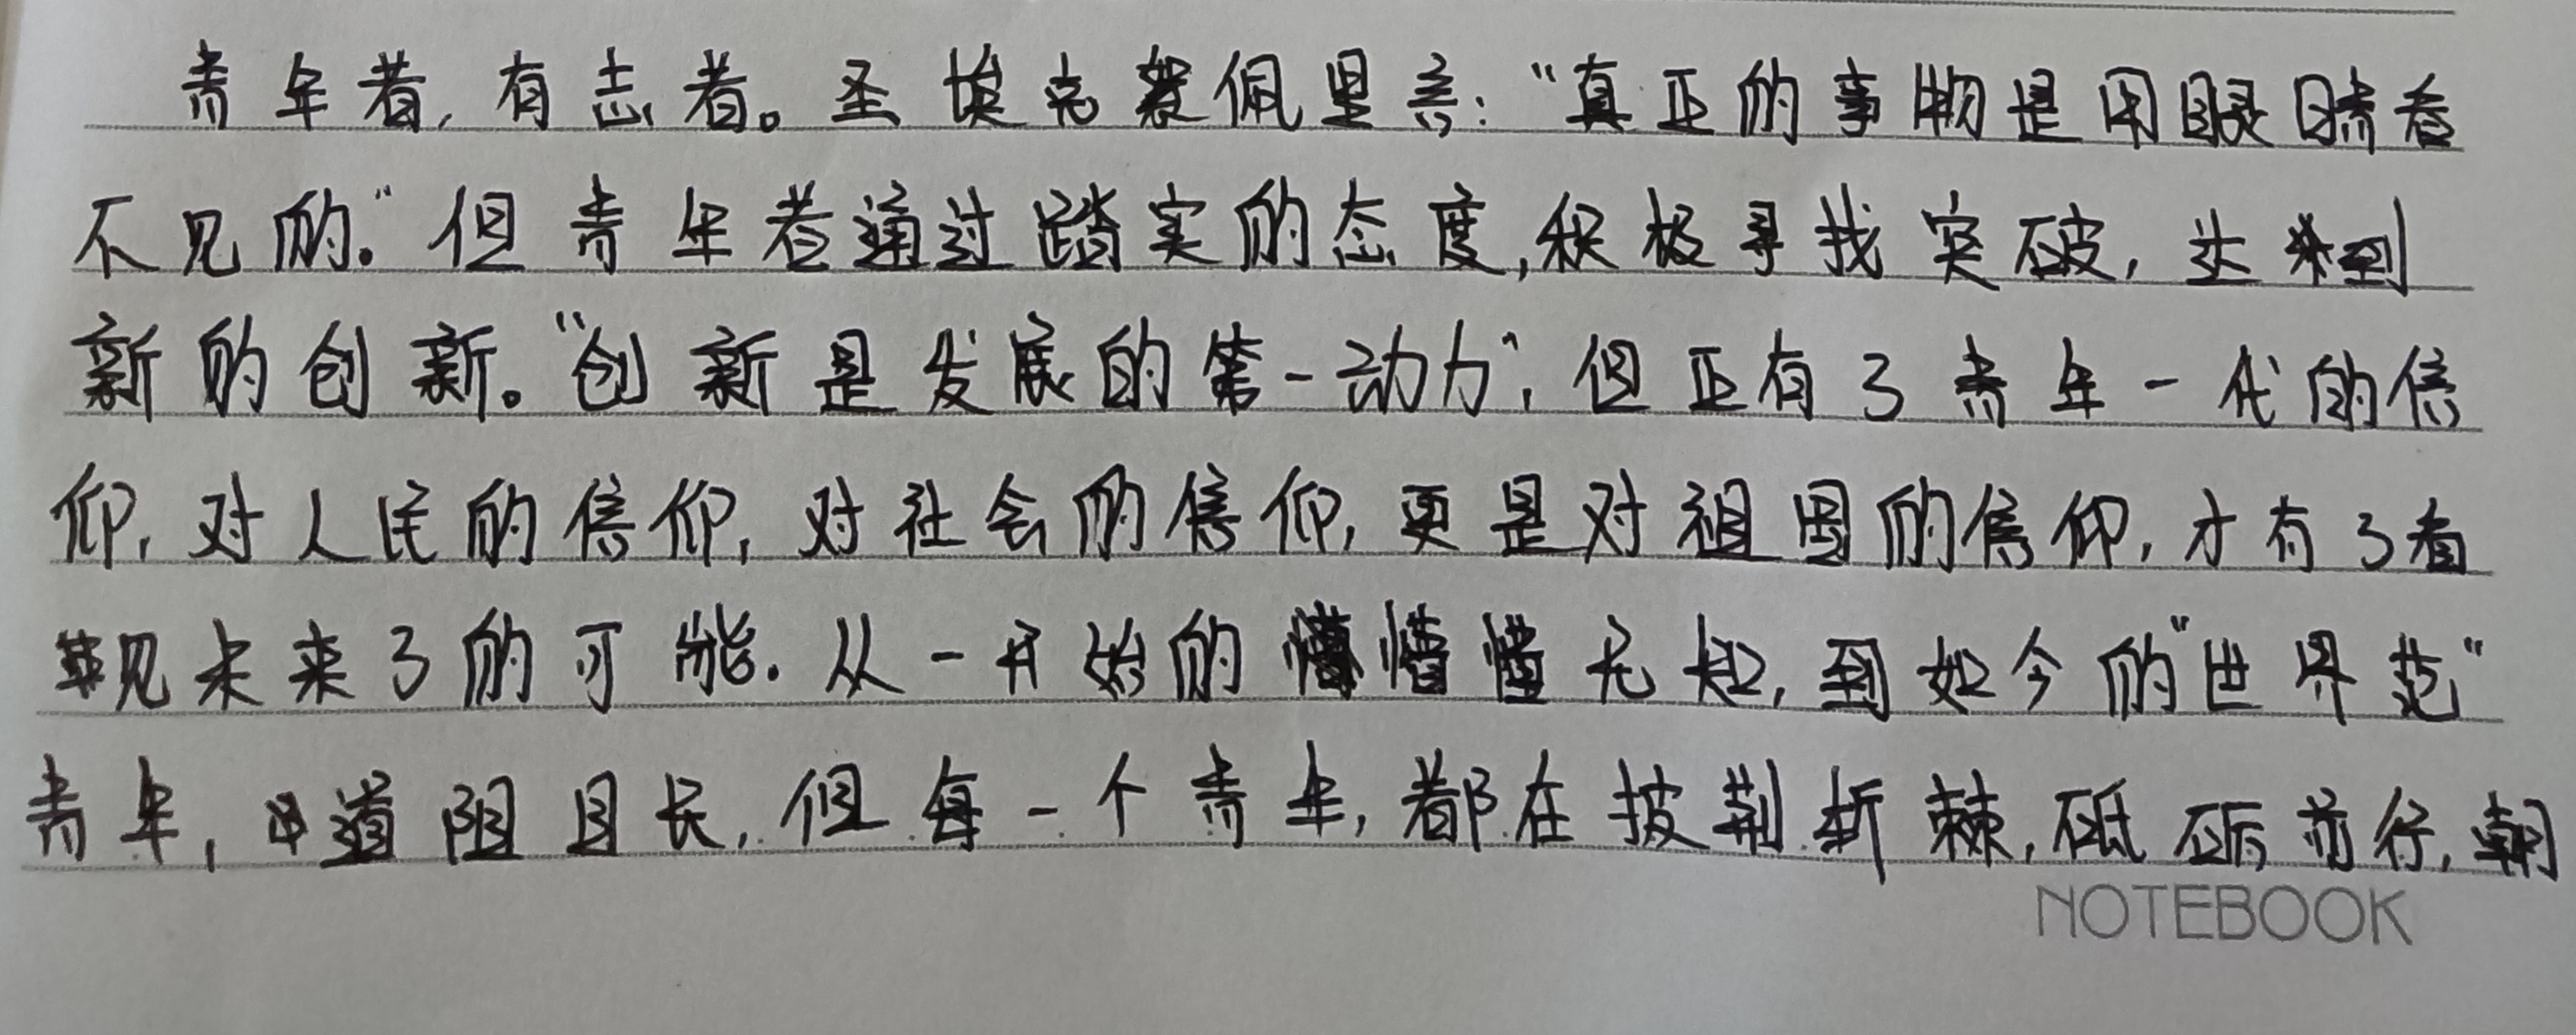 青年者,有志者。圣埃克絮佩里言:“真正的事物是用眼睛看
不见的。”但青年者通过踏实的态度,积极寻找突破,达到
新的创新。“创新是发展的第一动力”,但正有了青年一代的信
仰,对人民的信仰,对社会的信仰,更是对祖国的信仰,才有了看
见未来了的可能。从一开始的懵懂无知,到如今的“世界范”
青年,道阻且长,但每一个青年,都在披荆斩棘,砥砺前行,朝
NOTEBOOK